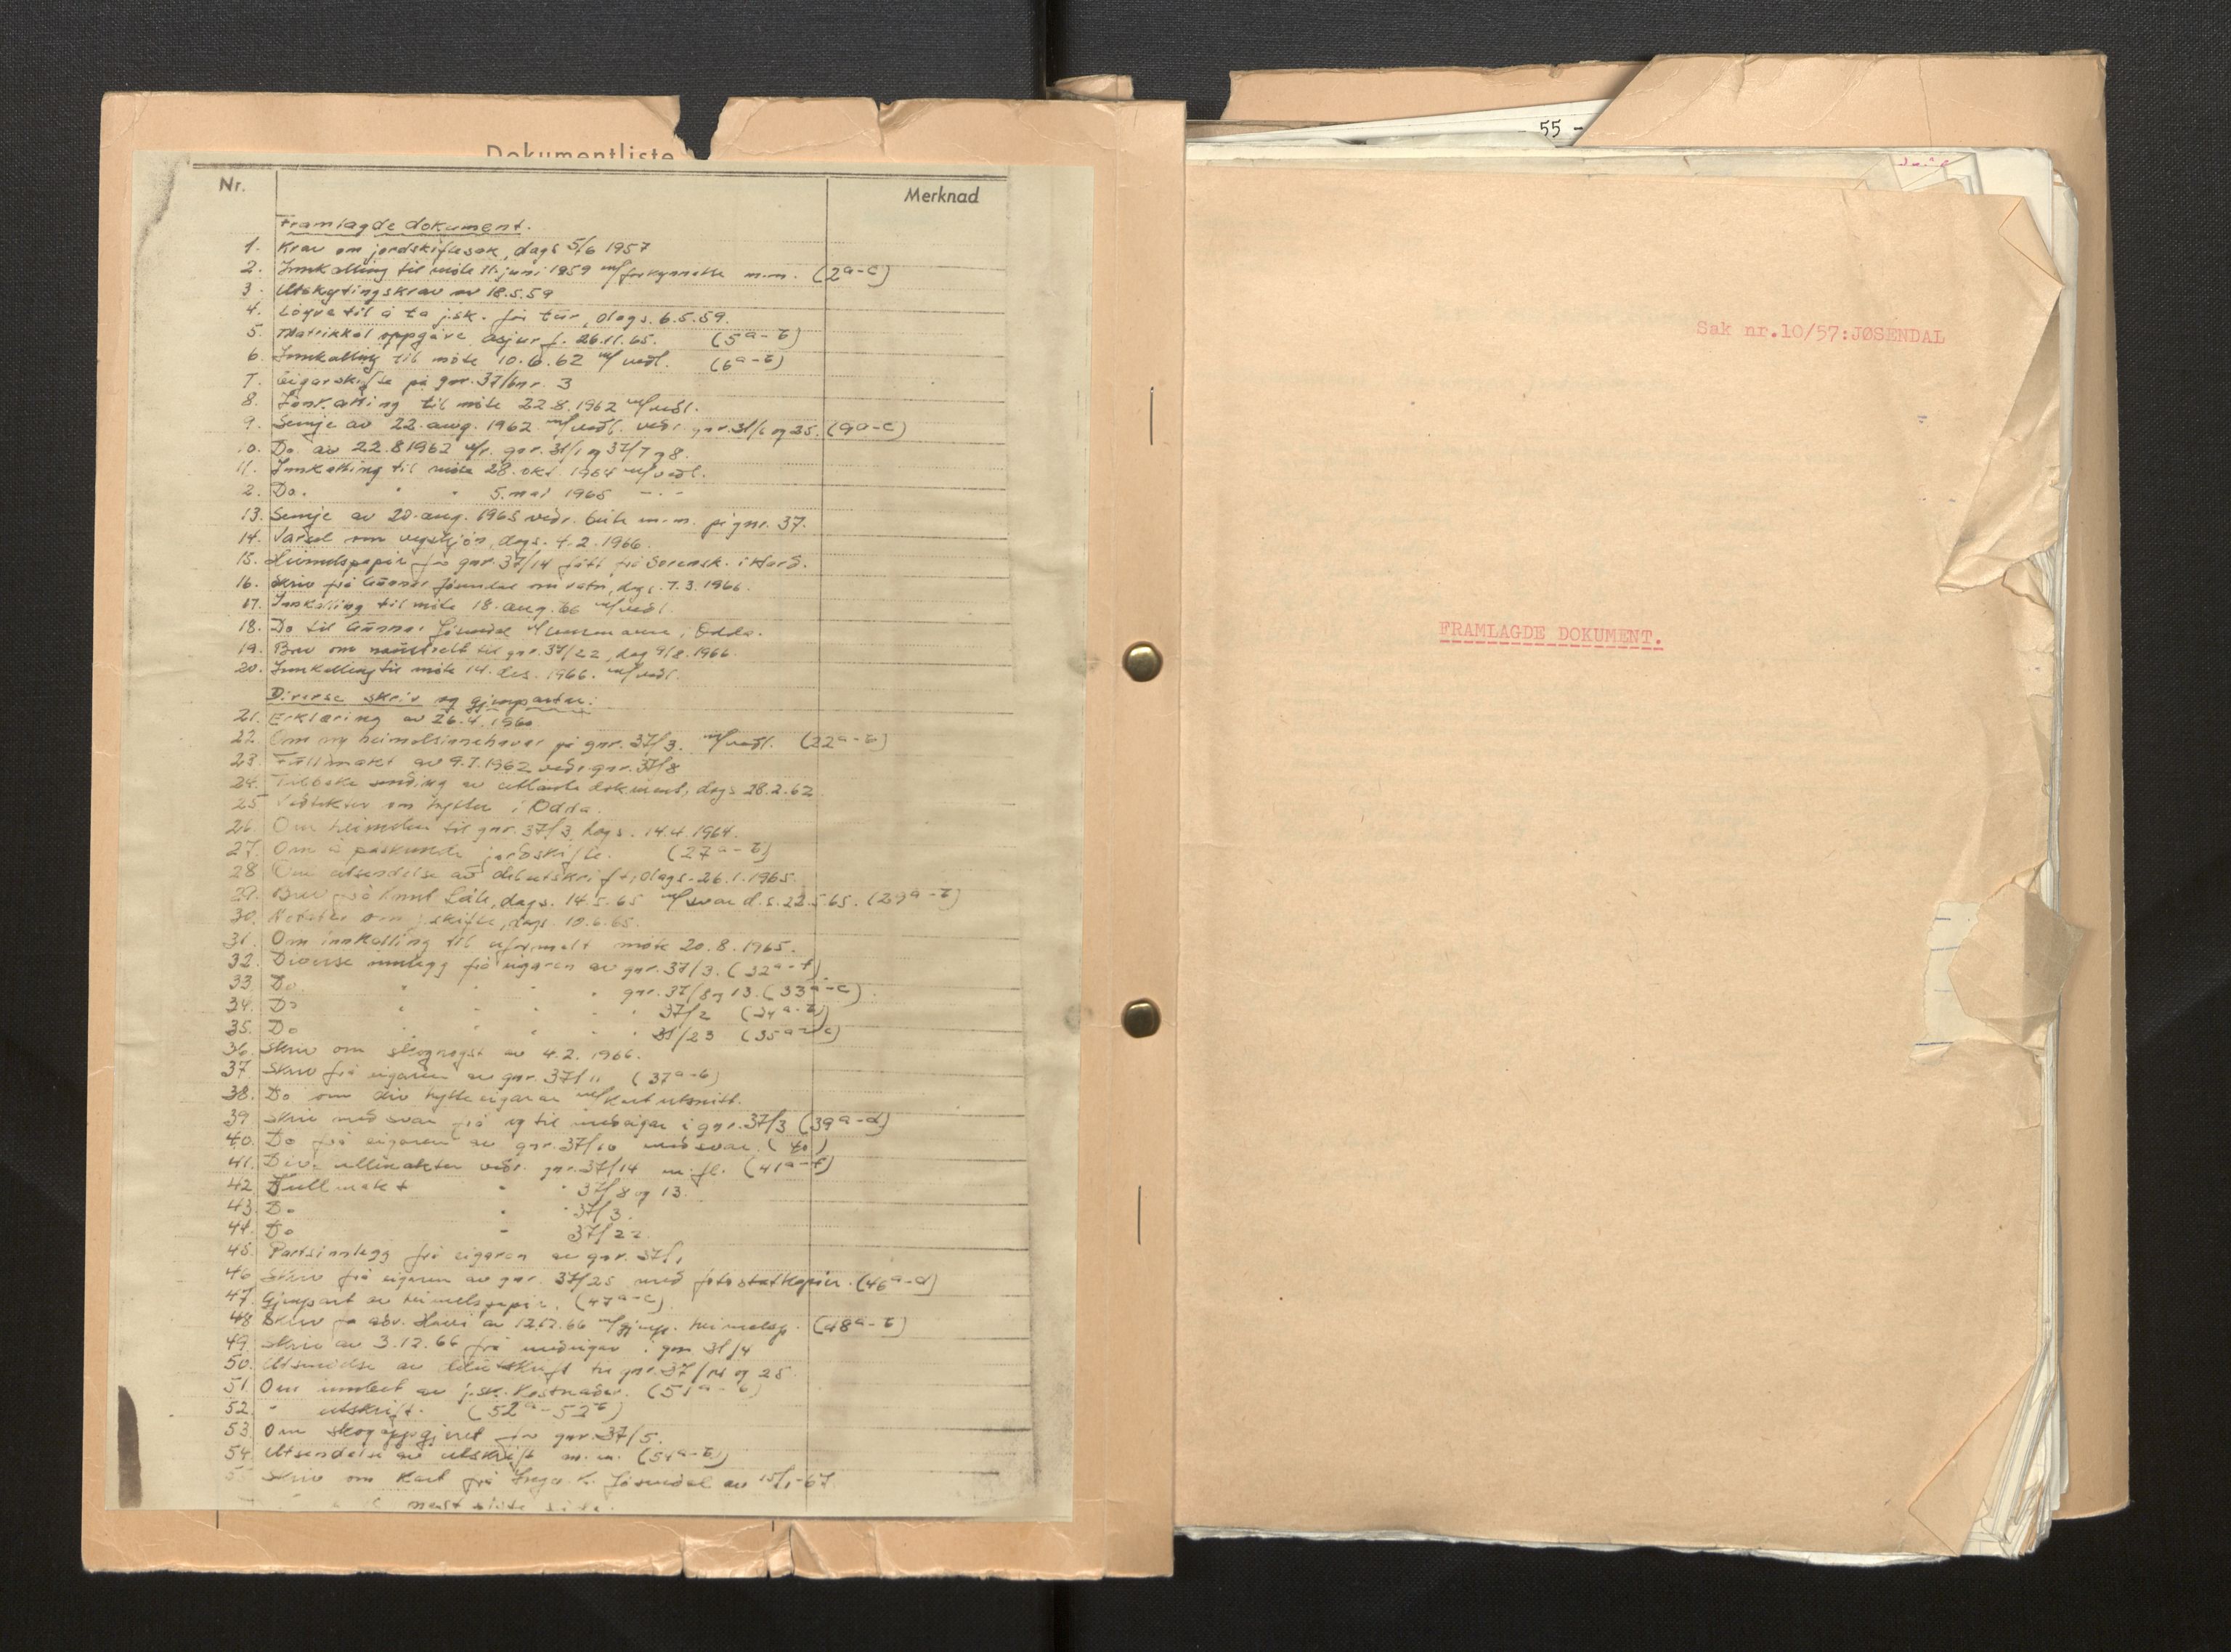 Dokumentliste
Nr.
Merknad
Framlagde dokument.
1. Krav om jordskiftesak, dags 5/6 1957
2. Innkalling til møte 11. juni 1959 m/forkynnelse m.m. (2a-c)
3. Utskytingskrav av 18.5.59
4. Løyve til å ta j.sk. før tur, dags. 6.5.59.
5. Matrikkel oppgave asjurf. 26.11.65. (5a-b)
6. Innkalling til møte 10.6.62 m/vedl. (6a-b)
7. Eigarskifte på gnr. 37/bnr. 3
8. Innkalling til møte 22.8.1962 m/vedl.
9. Semje av 22. aug. 1962 m/vedl. vedr. gnr. 31/ og 35. (9a-c)
10. Do. av 22.8 1962 gnr. 31/1 og 37/7 og 8.
11. Innkalling til møte 28. okt. 1964 m/vedl.
2. Do. " " 5. mai 1965 - . -
13. Semje av 20. aug. 1965 vedr. m.m. på gnr. 37.
14. Varsel om dags. 4.2.1966.
15. Heimelspapir for gnr. 37/14 fått frå Sorensk. i Hard.
16. Skriv frå Gunnar Jøsendal om dags. 7.3.1966.
17. Innkalling til møte 18. aug. 66 m/vedl.
18. Do til Gunnar Jøsendal , Odda.
19. Brev om til gnr. 37/22, dag 9/8. 1966.
20. Innkalling til møte 14. des. 1966. m/vedl.
Diverse skriv og gjenparter:
21. Erklæring av 26.4.1960
22. Om ny heimelsinnehavar på gnr. 37/3. m/vedl. (22a-b)
23. Fullmakt av 9.7.1962 vedr. gnr. 37/8
24. Tilbake sending av utlånte dokument, dags 28.2.62
25. Vedtekter om hytter i Odda.
26. Om heimelen til gnr. 37/3, dags. 14.4.1964.
27. Om å påskunde jordskifte. (27a-b)
28. Om utsendelse av delutskrift, dags. 26.1.1965.
29. Brev frå Knut dags. 14.5.65 m/svar d.s. 22.5.65. (29a-b)
30. Notater om j.skifte, dags. 10.6.65.
31. Om innkalling til uformelt møte 20.8.1965.
32. Diverse innlegg frå eigaren av gnr. 37/3. (32a-f)
33. Do " " " " gnr. 37/8 og 13. (33a-c).
34. Do " " " " 37/2 (34a-b)
35. Do " " " " 31/23 (35a-c)
36. Skriv om av 4.2.1966.
37. Skriv frå eigaren av gnr. 37/11 (37a-b)
38. Do om div hytteeigarar m/kartutsnitt.
39. Skriv med svar frå og til medeigar i gnr. 37/3 (39a-d)
40. Do frå eigaren av gnr. 37/10 med svar. (40)
41. Div. vedr. gnr. 37/14 m.fl. (41a-f)
42. Fullmakt " " 37/8 og 13.
43. Do " " 37/3.
44. Do " 37/22.
45. Partsinnlegg frå eigaren av gnr. 37/1
46. Skriv frå eigaren av gnr. 37/25 med fotostatkopier. (46a-d)
47. Gjenpart av heimelspapir. (47a-c)
48. Skriv fra adv. av 12.12.66 m/gjenp. heimelsp. (48a-b)
49. Skriv av 3.12.66 frå medeigar i gnr 31/4
50. Utsendelse av delutskrift til gnr. 37/14 og 25
51. Om innbet av j.sk. kostnader. (51a-b)
52. " utskrift. (52a-52b)
53. Om skogoppgjeret for gnr. 37/5.
54. Utsendelse av utskrift m.m. (54a-b)
5 Skriv om kart frå Inga K. Jøsendal av 15/1-67.
nest siste side.
- 55 -
Sak nr.10/57:JØSENDAL
FRAMLAGDE DOKUMENT.